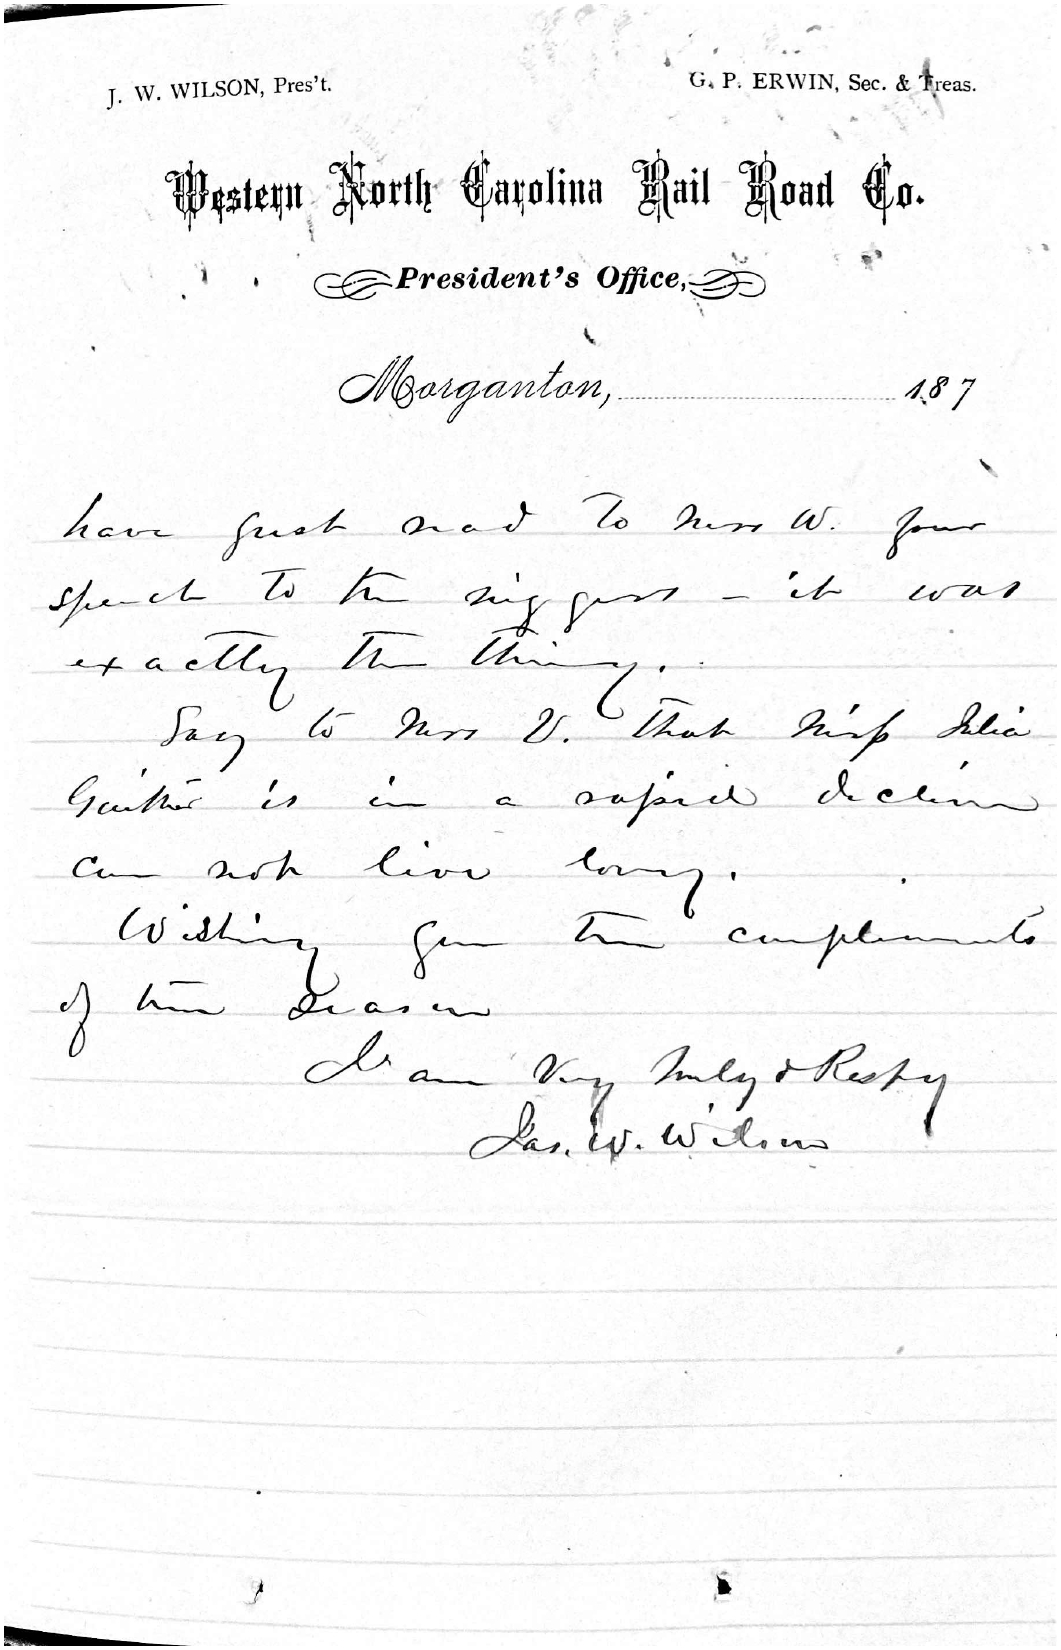 J. W. WILSON, Pres't.
G. P. ERWIN, Sec. & Treas.
Western North Carolina Rail Road Co.
President's Office,
Morganton, 187
have just read to Mrs W. your
speech to the niggers – it was
exactly the thing.
Say to Mrs V. that Miss Julia
Gaither is in a rapid decline
can not live long.
Wishing you the compliments
of the season
I am Very truly & Respy
Jas. W. Wilson